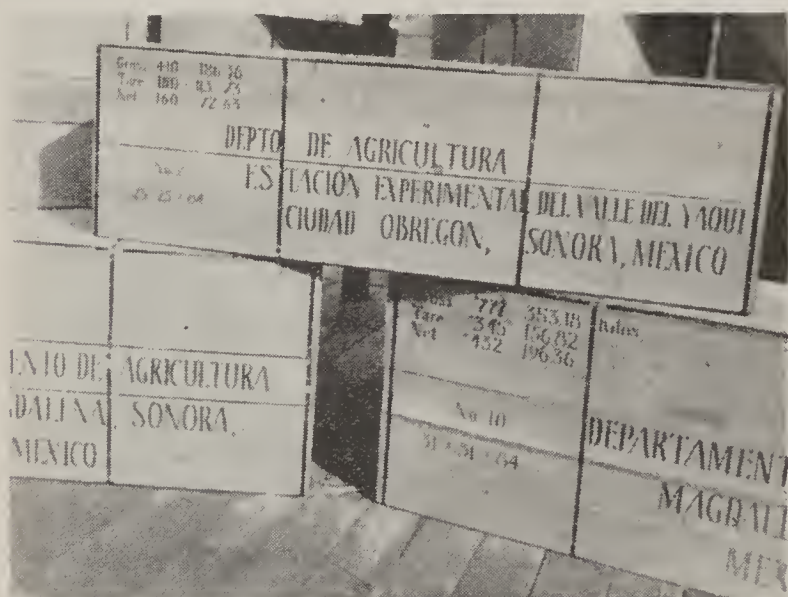 Gross 410 186 36
Tare
Net 160 72 63
DEPTO DE AGRICULTURA
ESTACIÓN EXPERIMENTAL DEL VALLE DEL YAQUI
CIUDAD OBREGON, SONORA, MEXICO
ENTO DE AGRICULTURA
GDALENA, SONORA,
MEXICO
777 353.18 kilos
Tare 345 156.82
Net 432 196.36
No 10
DEPARTAMENT
MAGDALE
MEX